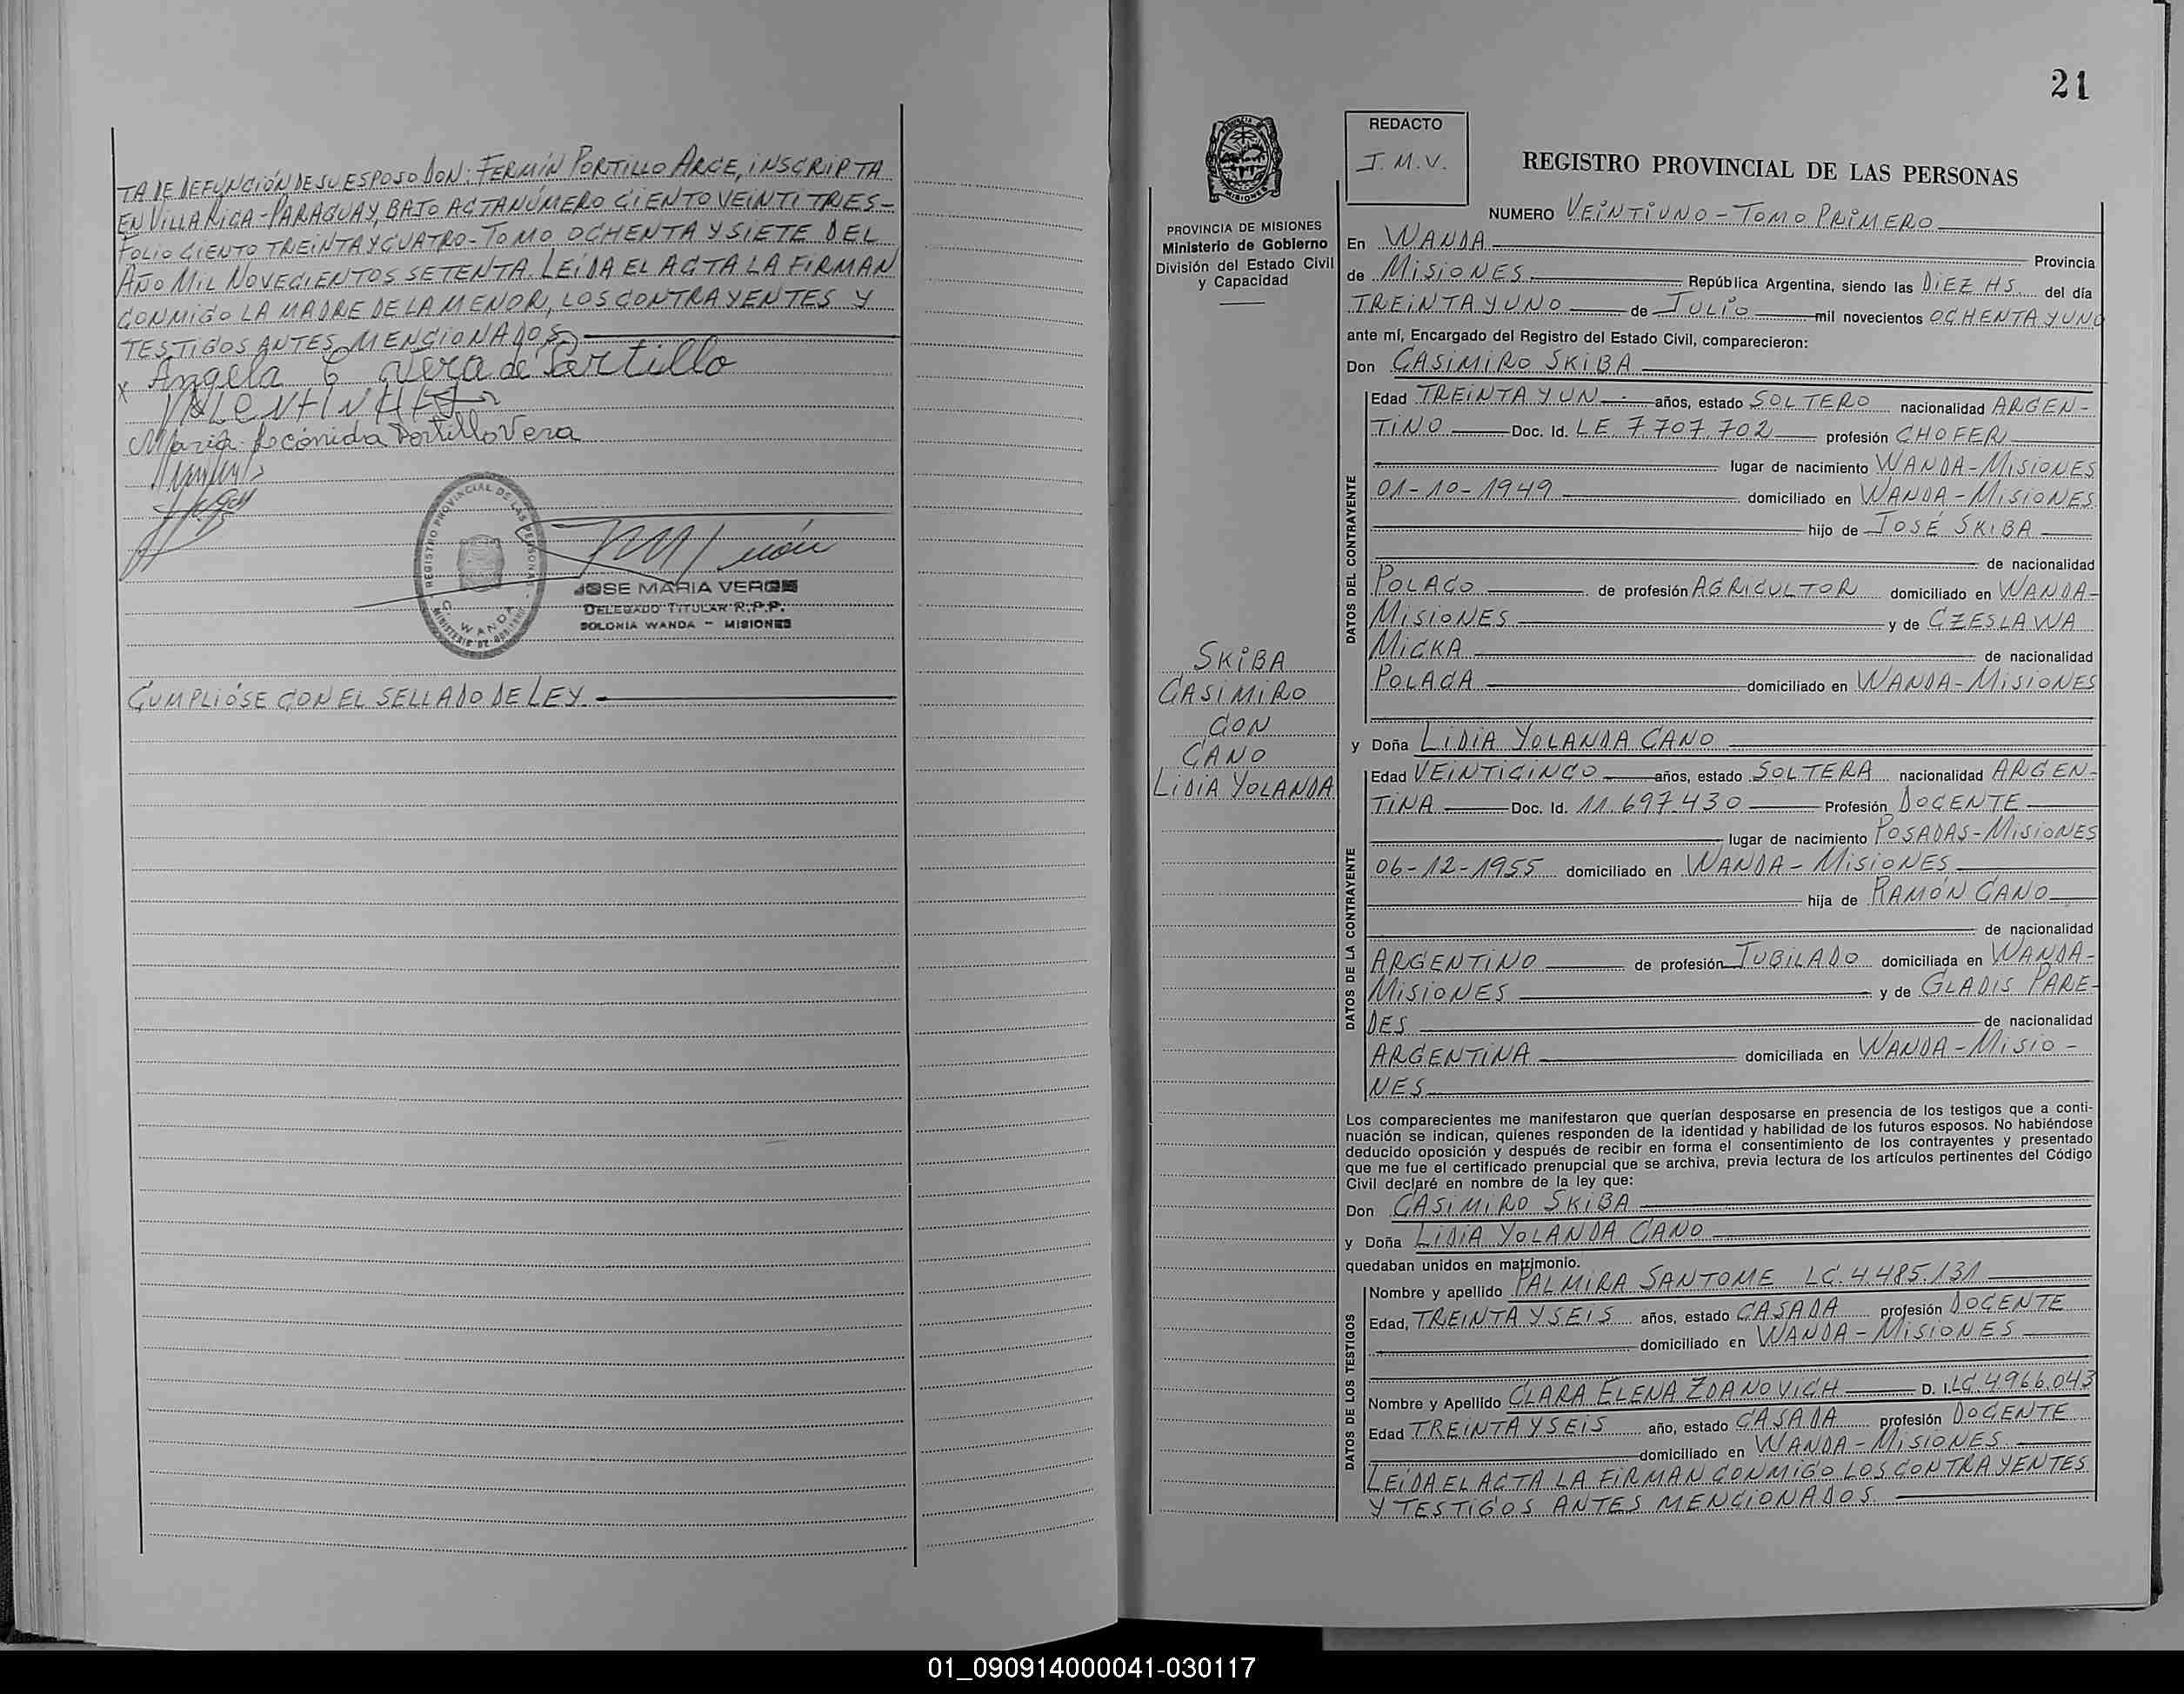 TA DE DEFUNCIÓN DE SU ESPOSO DON: FERMÍN PORTILLO ARCE, INSCRIPTA
EN VILLA RICA-PARAGUAY, BAJO ACTA NÚMERO CIENTO VEINTITRES-
FOLIO CIENTO TREINTA Y CUATRO-TOMO OCHENTA Y SIETE DEL
AÑO MIL NOVECIENTOS SETENTA. LEÍDA EL ACTA LA FIRMAN
CONMIGO LA MADRE DE LA MENOR, LOS CONTRAYENTES Y
TESTIGOS ANTES MENCIONADOS
x Angela C Vera de Portillo
Maria Portillo Vera
REGISTRO PROVINCIAL DE LAS PERSONAS
WANDA
JOSE MARIA VERON
DELEGADO TITULAR R.P.P.
COLONIA WANDA - MISIONES
CUMPLIÓSE CON EL SELLADO DE LEY.
21
REDACTO
J.M.V.
REGISTRO PROVINCIAL DE LAS PERSONAS
PROVINCIA DE MISIONES
Ministerio de Gobierno
División del Estado Civil
y Capacidad
SKIBA
CASIMIRO
CON
CANO
LIDIA YOLANDA
NUMERO VEINTIUNO-TOMO PRIMERO
En WANDA Provincia
de MISIONES República Argentina, siendo las DIEZ HS. del día
TREINTA Y UNO de JULIO mil novecientos OCHENTA Y UNO
ante mí, Encargado del Registro del Estado Civil, comparecieron:
Don CASIMIRO SKIBA
DATOS DEL CONTRAYENTE
Edad TREINTA Y UN años, estado SOLTERO nacionalidad ARGEN-
TINO Doc. Id. LE 7.707.702 profesión CHOFER
lugar de nacimiento WANDA-MISIONES
01-10-1949 domiciliado en WANDA-MISIONES
hijo de JOSÉ SKIBA
de nacionalidad
POLACO de profesión AGRICULTOR domiciliado en WANDA-
MISIONES y de CZESLAWA
MICKA de nacionalidad
POLACA domiciliado en WANDA-MISIONES
y Doña LIDIA YOLANDA CANO
DATOS DE LA CONTRAYENTE
Edad VEINTICINCO años, estado SOLTERA nacionalidad ARGEN-
TINA Doc. Id. 11.697.430 Profesión DOCENTE
lugar de nacimiento POSADAS-MISIONES
06-12-1955 domiciliado en WANDA-MISIONES
hija de RAMÓN CANO
de nacionalidad
ARGENTINO de profesión JUBILADO domiciliada en WANDA-
MISIONES y de GLADIS PARE-
DES de nacionalidad
ARGENTINA domiciliada en WANDA-MISIO-
NES
Los comparecientes me manifestaron que querían desposarse en presencia de los testigos que a conti-
nuación se indican, quienes responden de la identidad y habilidad de los futuros esposos. No habiéndose
deducido oposición y después de recibir en forma el consentimiento de los contrayentes y presentado
que me fue el certificado prenupcial que se archiva, previa lectura de los artículos pertinentes del Código
Civil declaré en nombre de la ley que:
Don CASIMIRO SKIBA
y Doña LIDIA YOLANDA CANO
quedaban unidos en matrimonio.
DATOS DE LOS TESTIGOS
Nombre y apellido PALMIRA SANTOME LC. 4.485.131
Edad, TREINTA Y SEIS años, estado CASADA profesión DOCENTE
domiciliado en WANDA-MISIONES
Nombre y Apellido CLARA ELENA ZDANOVICH D. I. LC. 4966.043
Edad TREINTA Y SEIS año, estado CASADA profesión DOCENTE
domiciliado en WANDA-MISIONES
LEÍDA EL ACTA LA FIRMAN CONMIGO LOS CONTRAYENTES
Y TESTIGOS ANTES MENCIONADOS
01_090914000041-030117